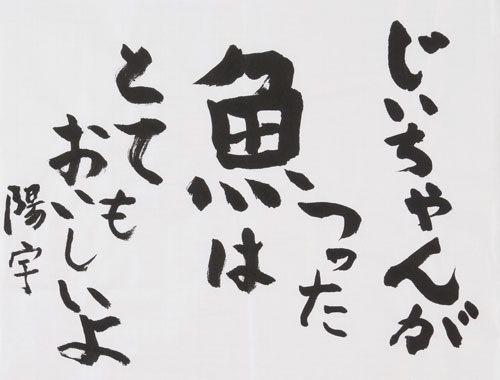 じいちゃんが
つった
魚は
とても
おいしいよ
陽宇